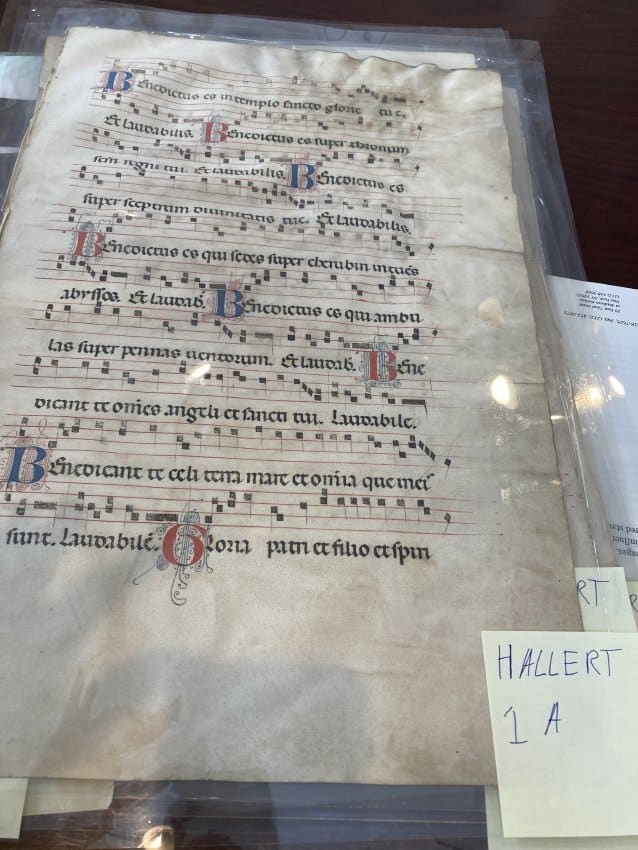 Benedictus es in templo sancto glorie tue.
Et laudabilis. Benedictus es super thronum
sem regni tui. Et laudabilis. Benedictus es
super sceptrum divinitatis tue. Et laudabilis.
Benedictus es qui sedes super cherubin intues
abyssos. Et laudab. Benedictus es qui ambu
las super pennas uentorum. Et laudab. Bene
dicant te om̄es angeli et sancti tui. Laudabile.
Benedicant te celi terra mare et om̄ia que in eis
sunt. Laudabile. Gloria patri et filio et spiri
RT
HALLERT
1 A